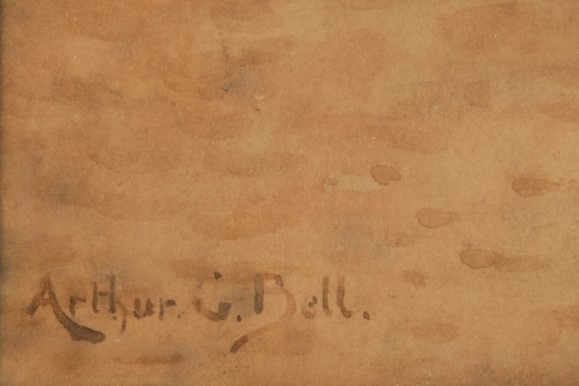 Arthur. G. Bell.